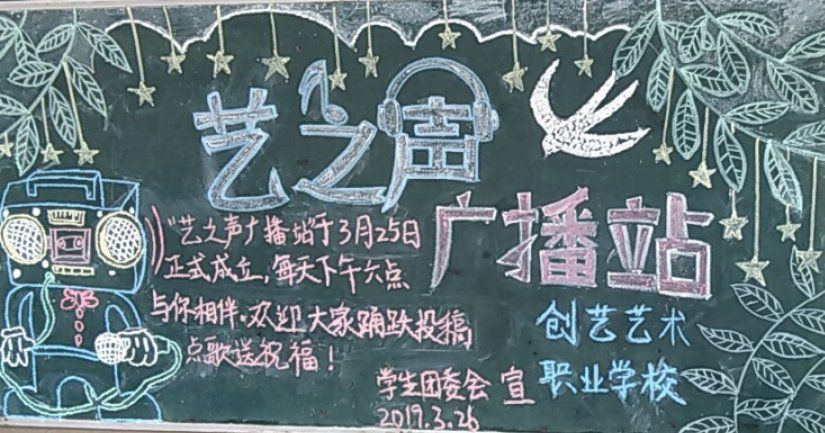 艺之声
广播站
"艺之声广播站于3月25日
正式成立,每天下午六点
与你相伴。欢迎大家踊跃投稿
点歌送祝福!
创艺艺术
职业学校
学生团委会 宣
2019.3.26